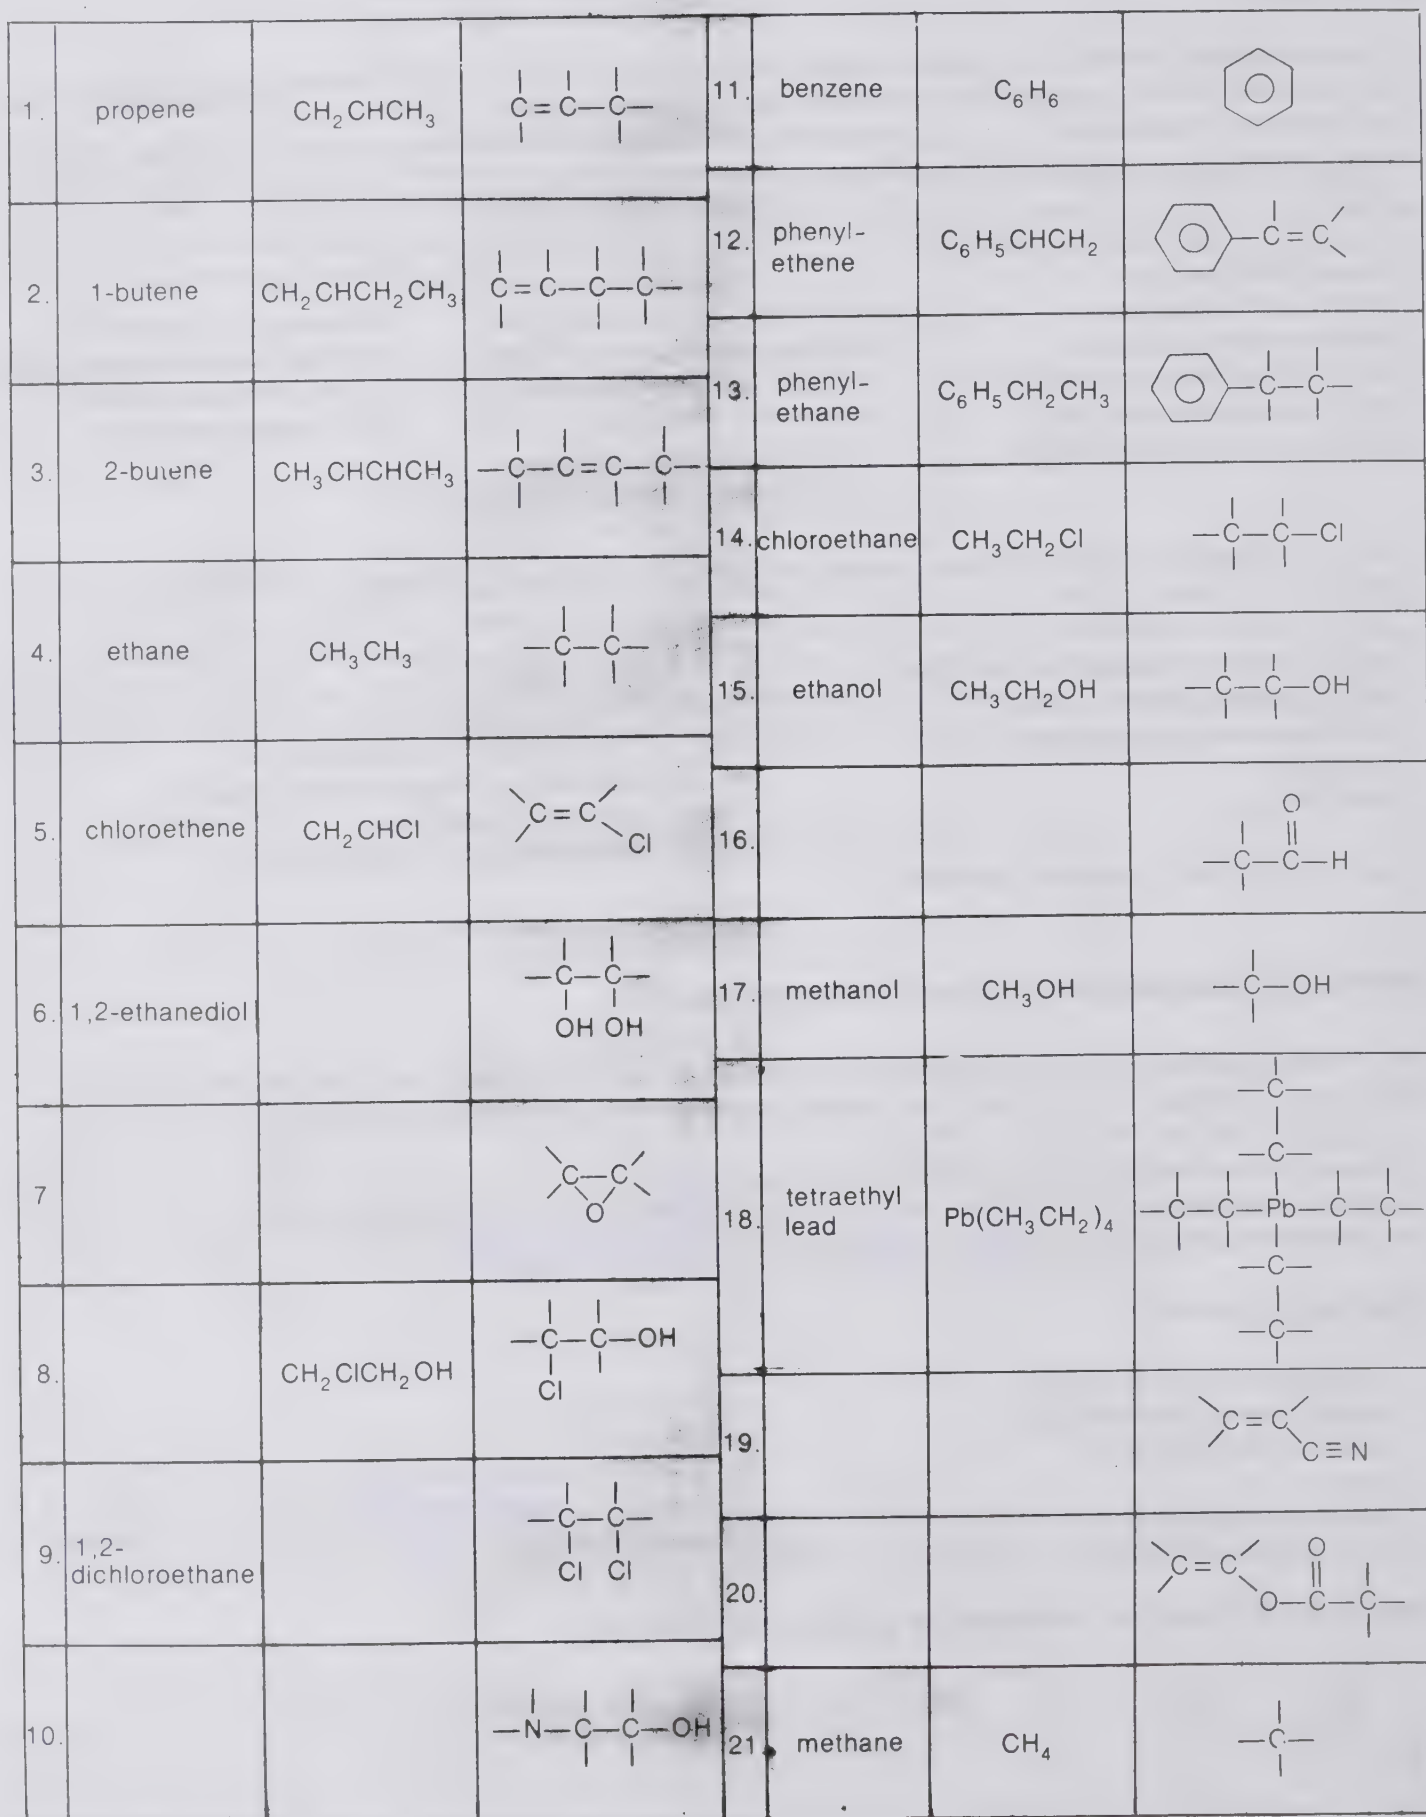 1.
propene
CH₂CHCH₃
C=C—C—
2.
1-butene
CH₂CHCH₂CH₃
C=C—C—C—
3.
2-butene
CH₃CHCHCH₃
—C—C=C—C—
4.
ethane
CH₃CH₃
—C—C—
5.
chloroethene
CH₂CHCl
C=C
Cl
6.
1,2-ethanediol
—C—C—
OH OH
7
C—C
O
8.
CH₂ClCH₂OH
—C—C—OH
Cl
9.
1,2-
dichloroethane
—C—C—
Cl Cl
10.
—N—C—C—OH
11.
benzene
C₆H₆
12.
phenyl-
ethene
C₆H₅CHCH₂
C=C
13.
phenyl-
ethane
C₆H₅CH₂CH₃
—C—C—
14.
chloroethane
CH₃CH₂Cl
—C—C—Cl
15.
ethanol
CH₃CH₂OH
—C—C—OH
16.
O
—C—C—H
17.
methanol
CH₃OH
—C—OH
18.
tetraethyl
lead
Pb(CH₃CH₂)₄
—C—
—C—
—C—C—Pb—C—C—
—C—
—C—
19.
C=C
C≡N
20.
C=C
O
O—C—C—
21
methane
CH₄
—C—